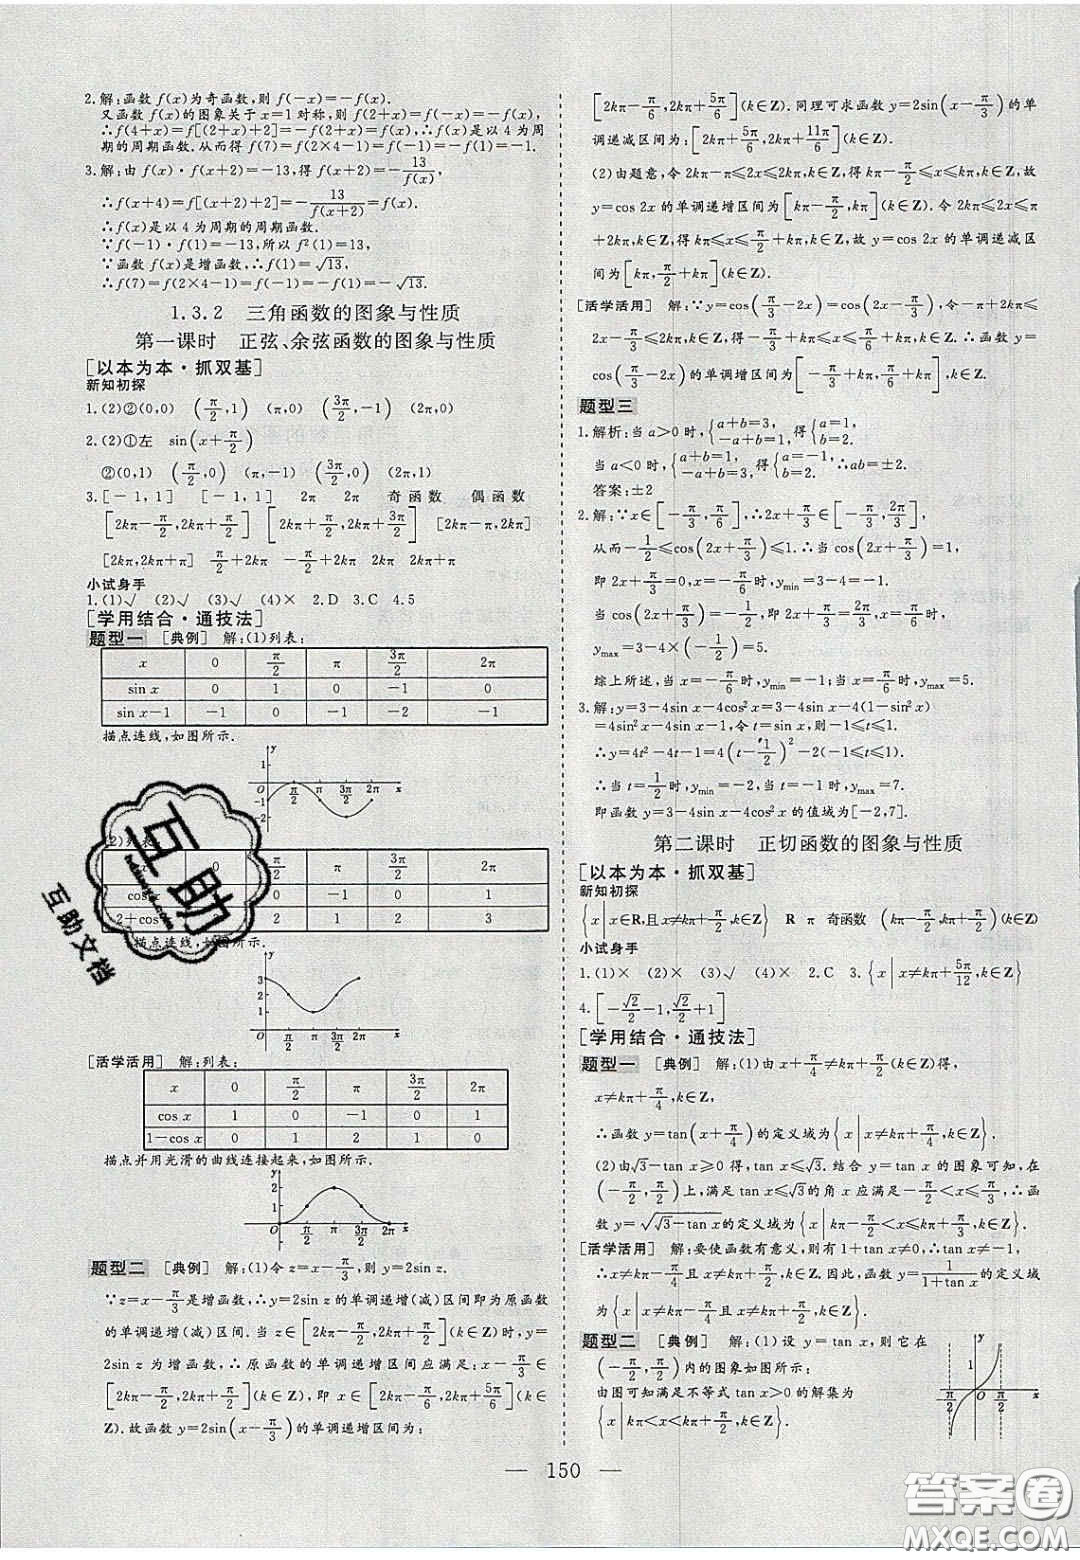 2.解:函数 f(x)为奇函数,则 f(-x)=-f(x).
又函数 f(x)的图象关于 x=1 对称,则 f(2+x)=f(-x)=-f(x),
∴f(4+x)=f[(2+x)+2]=-f(2+x)=f(x),∴f(x)是以 4 为周
期的周期函数.从而得 f(7)=f(2×4-1)=f(-1)=-f(1)=-1.
3.解:由 f(x)·f(x+2)=-13,得 f(x+2)=-13/f(x),
∴f(x+4)=f[(x+2)+2]=-13/f(x+2)=f(x).
∴f(x)是以 4 为周期的周期函数.
∵f(-1)·f(1)=-13,所以 f²(1)=13.
∵函数 f(x)是增函数,∴f(1)=√13,
∴f(7)=f(2×4-1)=f(-1)=-f(1)=-√13.
1.3.2 三角函数的图象与性质
第一课时 正弦、余弦函数的图象与性质
[以本为本·抓双基]
新知初探
1.(2)②(0,0) (π/2,1) (π,0) (3π/2,-1) (2π,0)
2.(2)①左 sin(x+π/2)
②(0,1) (π/2,0) (π,-1) (3π/2,0) (2π,1)
3.[-1,1] [-1,1] 2π 2π 奇函数 偶函数
[2kπ-π/2,2kπ+π/2] [2kπ+π/2,2kπ+3π/2] [2kπ-π,2kπ]
[2kπ,2kπ+π] π/2+2kπ -π/2+2kπ 2kπ π+2kπ
小试身手
1.(1)√ (2)√ (3)√ (4)× 2.D 3.C 4.5
[学用结合·通技法]
题型一 [典例] 解:(1)列表:
x 0 π/2 π 3π/2 2π
sin x 0 1 0 -1 0
sin x-1 -1 0 -1 -2 -1
描点连线,如图所示.
y 1 O -1 -2 π/2 π 3π/2 2π x
(2)列表
0 -1 0 1
2 1 2 3
描点连线,如图所示.
y 3 2 1 O π/2 π 3π/2 2π x
[活学活用] 解:列表:
x 0 π/2 π 3π/2 2π
cos x 1 0 -1 0 1
1-cos x 0 1 2 1 0
描点并用光滑的曲线连接起来,如图所示.
y 2 1 O π/2 π 3π/2 2π x
题型二 [典例] 解:(1)令 z=x-π/3,则 y=2sin z.
∵z=x-π/3是增函数,∴y=2sin z的单调递增(减)区间即为原函数
的单调递增(减)区间.当 z∈[2kπ-π/2,2kπ+π/2](k∈Z)时,y=
2sin z 为增函数,∴原函数的单调递增区间应满足:x-π/3∈
[2kπ-π/2,2kπ+π/2](k∈Z),即 x∈[2kπ-π/6,2kπ+5π/6](k∈
Z).故函数 y=2sin(x-π/3)的单调递增区间为:
[2kπ-π/6,2kπ+5π/6](k∈Z).同理可求函数 y=2sin(x-π/3)的单
调递减区间为:[2kπ+5π/6,2kπ+11π/6](k∈Z).
(2)由题意,令 2kπ-π≤2x≤2kπ,k∈Z,得 kπ-π/2≤x≤kπ,k∈Z,故
y=cos 2x 的单调递增区间为[kπ-π/2,kπ](k∈Z).令 2kπ≤2x≤π
+2kπ,k∈Z,得 kπ≤x≤π/2+kπ,k∈Z,故 y=cos 2x 的单调递减区
间为[kπ,π/2+kπ](k∈Z).
[活学活用] 解:∵y=cos(π/3-2x)=cos(2x-π/3),令-π+
2kπ≤2x-π/3≤2kπ,k∈Z,则-π/3+kπ≤x≤π/6+kπ,k∈Z.故 y=
cos(π/3-2x)的单调增区间为[-π/3+kπ,π/6+kπ],k∈Z.
题型三
1.解析:当 a>0时,{a+b=3, -a+b=1, 得{a=1, b=2.
当 a<0时,{a+b=1, -a+b=3, 得{a=-1, b=2. ∴ab=±2.
答案:±2
2.解:∵x∈[-π/3,π/6],∴2x+π/3∈[-π/3,2π/3],
从而-1/2≤cos(2x+π/3)≤1.∴当 cos(2x+π/3)=1,
即 2x+π/3=0,x=-π/6时,ymin=3-4=-1.
当 cos(2x+π/3)=-1/2,即 2x+π/3=2π/3,x=π/6时,
ymax=3-4×(-1/2)=5.
综上所述,当 x=-π/6时,ymin=-1;当 x=π/6时,ymax=5.
3.解:y=3-4sin x-4cos²x=3-4sin x-4(1-sin²x)
=4sin²x-4sin x-1,令 t=sin x,则-1≤t≤1.
∴y=4t²-4t-1=4(t-1/2)²-2(-1≤t≤1).
∴当 t=1/2时,ymin=-2,当 t=-1 时,ymax=7.
即函数 y=3-4sin x-4cos²x 的值域为[-2,7].
第二课时 正切函数的图象与性质
[以本为本·抓双基]
新知初探
{x|x∈R,且x≠kπ+π/2,k∈Z} R π 奇函数 (kπ-π/2,kπ+π/2)(k∈Z)
小试身手
1.(1)× (2)× (3)√ (4)× 2.C 3.{x|x≠kπ+5π/12,k∈Z}
4.[-√2/2-1,√2/2+1]
[学用结合·通技法]
题型一 [典例] 解:(1)由 x+π/4≠kπ+π/2,k∈Z得,
x≠kπ+π/4,k∈Z,
∴函数 y=tan(x+π/4)的定义域为{x|x≠kπ+π/4,k∈Z}.
(2)由√3-tan x≥0 得,tan x≤√3.结合 y=tan x 的图象可知,在
(-π/2,π/2)上,满足 tan x≤√3的角 x 应满足-π/2<x≤π/3,∴函
数 y=√(√3-tan x)的定义域为{x|kπ-π/2<x≤kπ+π/3,k∈Z}.
[活学活用] 解:要使函数有意义,则有 1+tan x≠0,∴tan x≠-1,
∴x≠kπ-π/4且 x≠kπ+π/2,k∈Z.因此,函数 y=1/(1+tan x)的定义域
为{x|x≠kπ-π/4且 x≠kπ+π/2,k∈Z}.
题型二 [典例] 解:(1)设 y=tan x,则它在
(-π/2,π/2)内的图象如图所示:
由图可知满足不等式 tan x>0 的解集为
{x|kπ<x<kπ+π/2,k∈Z}.
y 1 -π/2 O π/2 x
— 150 —
互助
互助文档
答案圈
MXQE.COM